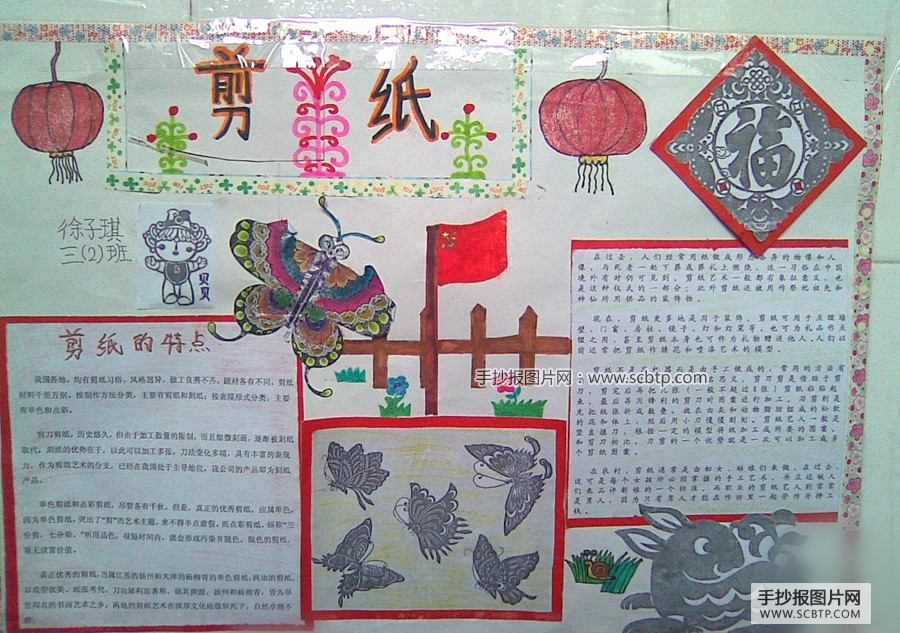 剪 纸
福
徐子琪
三(2)班
贝贝
剪纸的特点
我国各地，均有剪纸习俗，风格迥异，做工良莠不齐，题材各有不同，剪纸
材料千差万别。按制作方法分类，主要有剪纸和刻纸；按表现形式分类，主要
有单色和点彩。
剪刀剪纸，历史悠久，但由于加工数量的限制，而且细微刻画，逐渐被刻纸
取代。刻纸的优势在于，以此可以加工多张，刀法变化多端，具有丰富的表现
力。作为剪纸艺术的分支，已经在我国处于主导地位。我公司的产品即为刻纸
产品。
单色剪纸和点彩剪纸，尽管各有千秋，但是，真正的优秀剪纸，应属单色，
因为单色剪纸，突出了“剪”的艺术主题，来不得半点虚假。而点彩剪纸，俗称“三
分剪，七分染。”所用品色，很短时间内，就会形成污染并脱色，脱色的剪纸，
毫无欣赏价值。
真正优秀的剪纸，当属江苏的扬州和天津的杨柳青的单色剪纸。两地的剪纸，
以造型优美、纸张考究、刀功犀利而著称。就其渊源，扬州和杨柳青，皆为举
世闻名的书画艺术之乡，两地的剪纸艺术在深厚文化底蕴烘托下，自然卓越不
群。
在过去，人们经常用纸做成形态各异的物像和人
像，与死者一起下葬或葬礼上燃烧，这一习俗在中国
境外有时仍可见到。剪纸艺术一般都有象征意义，也
是这种仪式的一部分；此外剪纸还被用作祭礼祖先和
神仙所用供品的装饰物。
现在，剪纸更多地是用于装饰。剪纸可用于点缀墙
壁、门窗、房柱、镜子、灯和灯笼等，也可为礼品作点
缀之用，甚至剪纸本身也可作为礼物赠送他人。人们以
前还常把剪纸作绣花和喷漆艺术的模型。
剪纸不是用机器而是由手工做成的，常用的方法有
剪完后再把几张（一般不超过八张）剪纸粘贴起
来，最后再用锋利的剪刀对图案进行加工。刀剪则是
先把纸张折成数叠，放在由灰和动物脂肪组成的松软
的混和体上，然后用小刀慢慢刻划。剪纸艺人一般是
竖直握刀，根据一定的模型将纸加工成所要的图案。
和剪刀相比，刀剪的一个优势就是一次可以加工成多
个剪纸图案。
在农村，剪纸通常是由妇女、姑娘们来做。在过去，
这可是每个女孩所必须掌握的手工艺术，并且还被人
们来品评新娘的一个标准。而职业的剪纸艺人则常常
是男人，因为只有男人才能在作坊里一起劳作并挣工
钱。
手抄报图片网：www.scbtp.com
手抄报图片网
WWW.SCBTP.COM